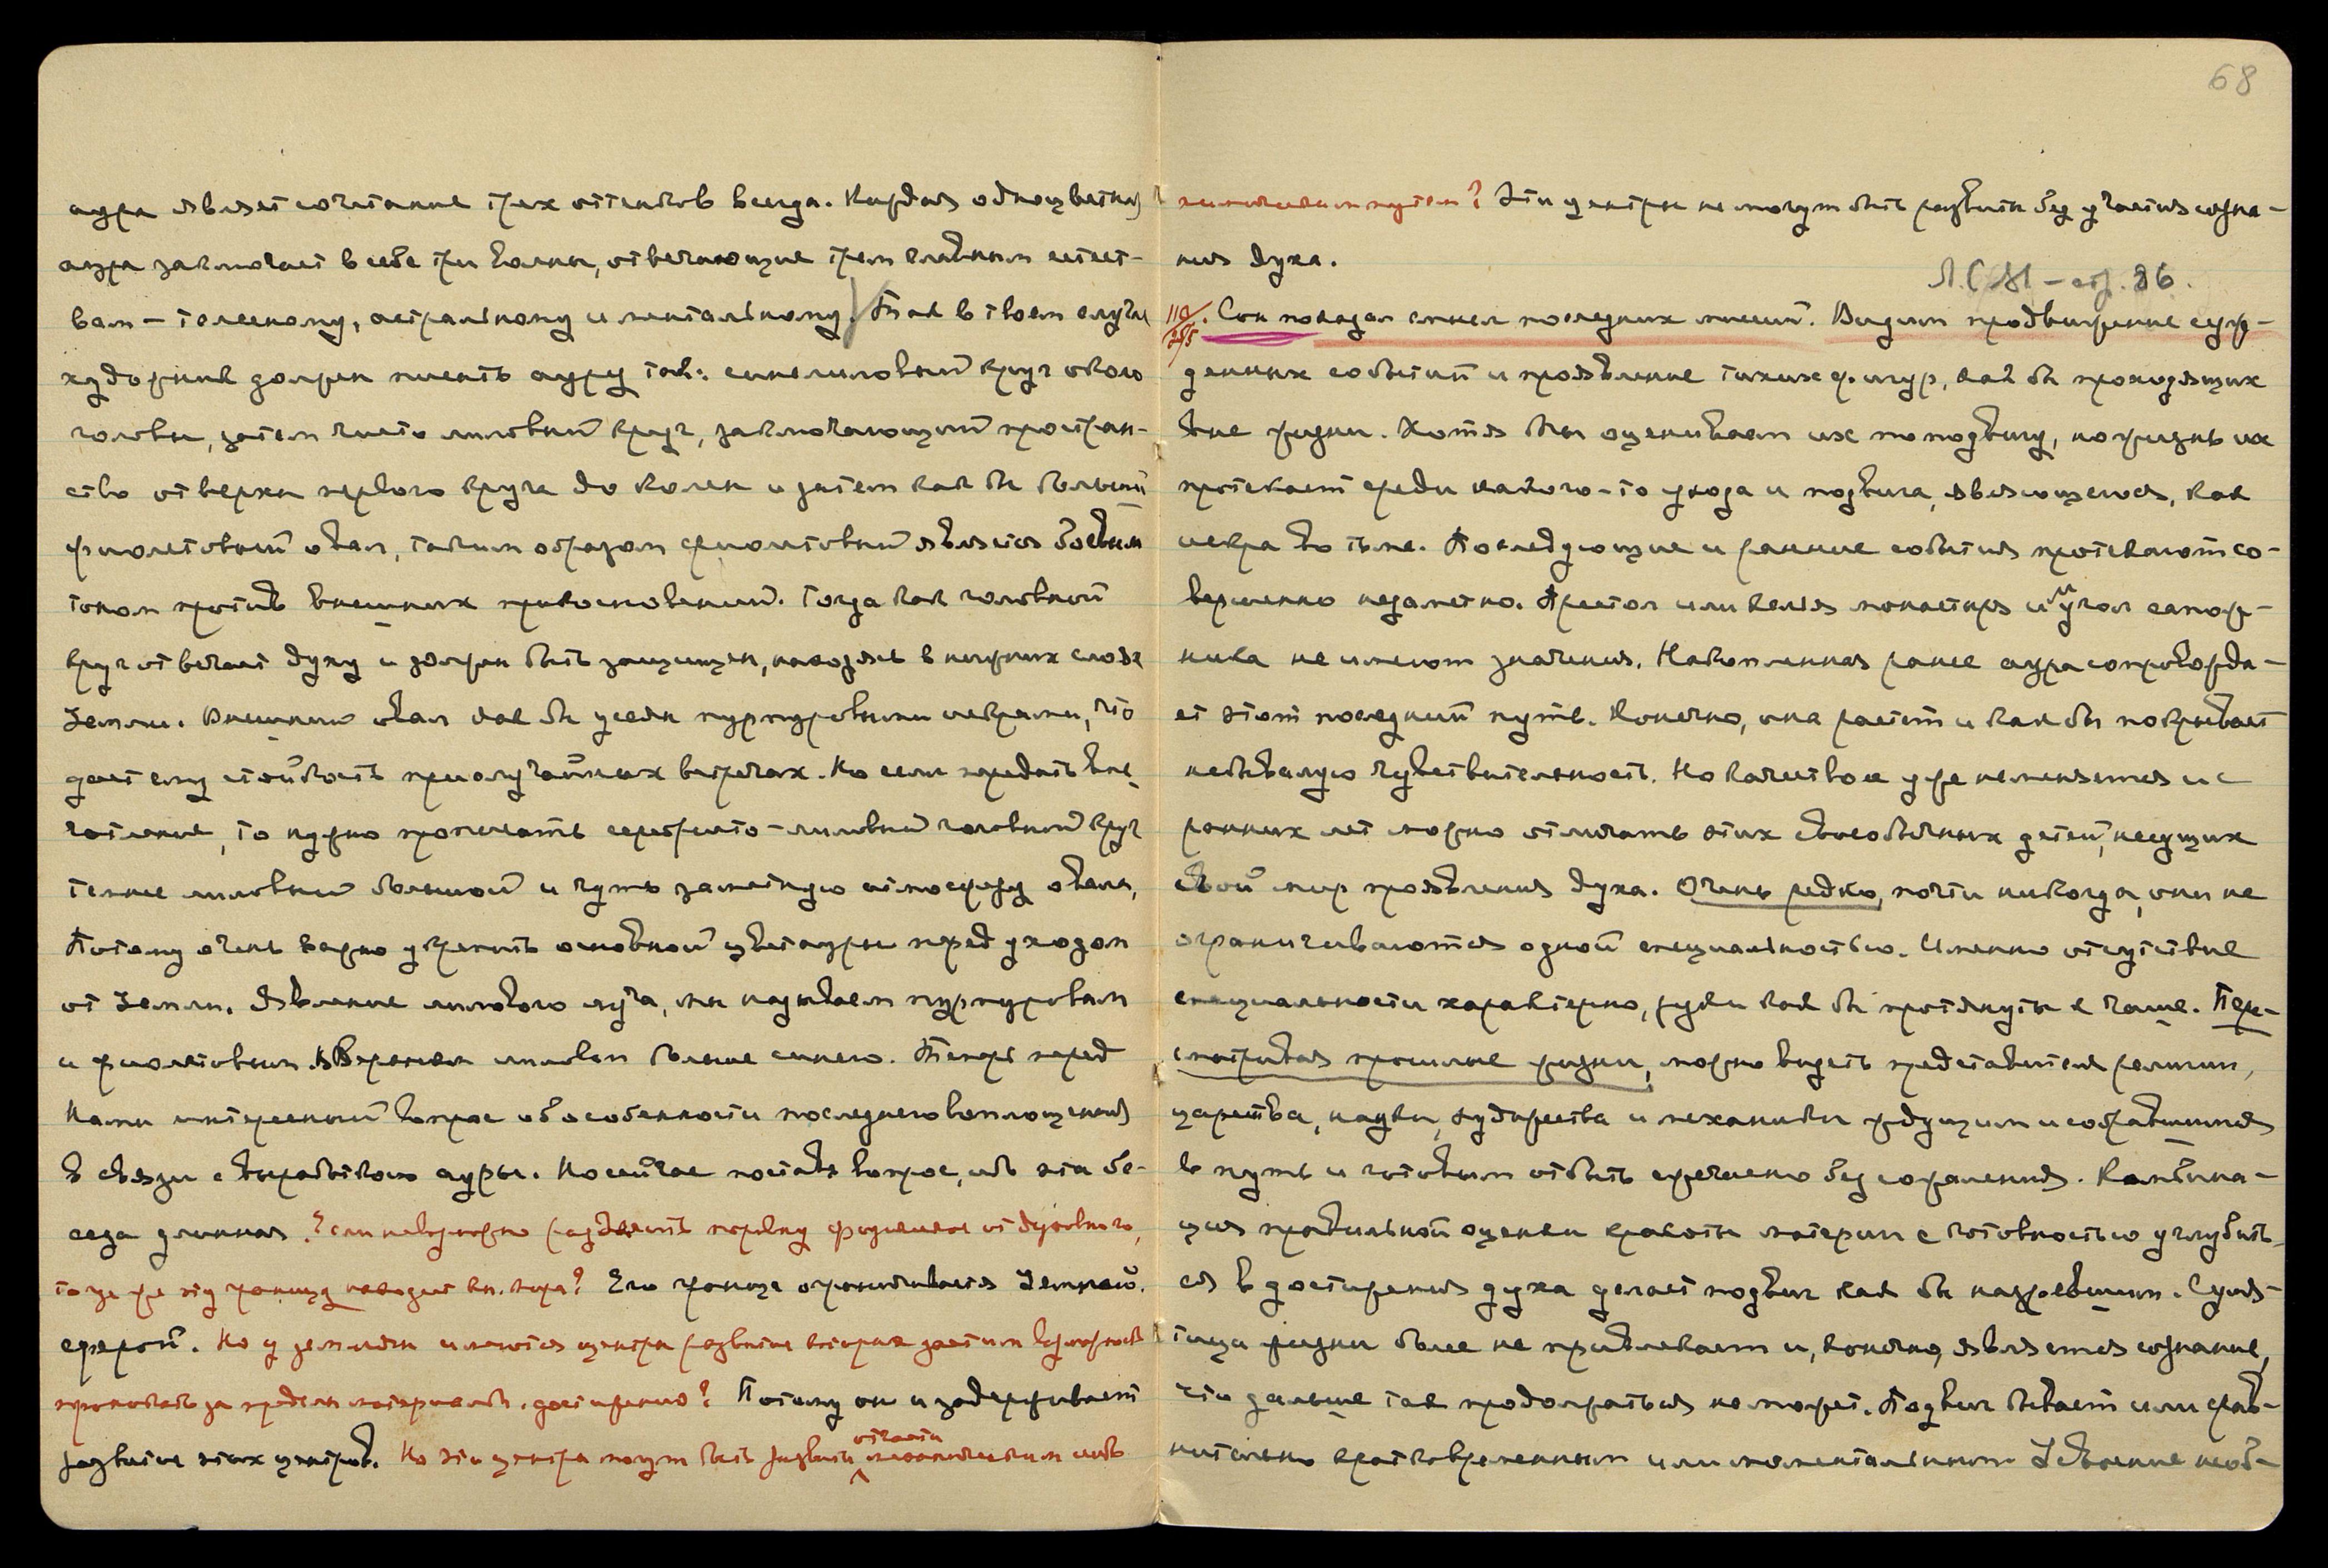 аура являет сочетание трех оттенков всегда. Каждая одноцветная
аура заключает в себе три волны, отвечающие трем главным естест-
вам — телесному, астральному и ментальному. Так в твоем случае
художник должен писать ауру так: синелиловый круг около
головы, затем чисто лиловый круг, заключающий простран-
ство от верха первого круга до колен и затем как бы большой
фиолетовый овал, таким образом фиолетовый является боевым
тоном против внешних прикосновений. Тогда как головной
круг отвечает духу и должен быть защищен, находясь в нижних слоях
Земли. Внешний овал как бы усеян пурпуровыми искрами, что
дает ему стойкость при случайных встречах. Но если передать впе-
чатление, то нужно произнести серебристо-лиловый головной круг
темнее лиловый большой и чуть заметную атмосферу овала,
Потому очень важно укрепить основной цвет ауры перед уходом
от Земли. Явление лилового луча, мы называем пурпуровым
и фиолетовым. Временем лиловым больше синего. Теперь перед
Нами интересный вопрос об особенности последнего воплощения
в связи с выработкою ауры. Но сейчас поставлю вопрос, иб эта бе-
седа длинная ? Если невозможно разделить порівну физическое от духовного,
то где же эту границу находит кн. мира? Его граница ограничивается Земною
сферой. Но у землян имеются центры развитие которых дает им возможность
проникать за пределы материальн. достижению? Потому он и задерживает
развитие этих центров. Но эти центры могут быть развиты отчасти механическим либо
68
химическим путем? Эти центры не могут быть развиты без участия созна-
ния духа.
Л.С.М — стр. 86.
110/ . Сон показал смысл последних жизней. Видим продвижение суж-
денных событий и проявление таких фигур, как бы проходящих
вне жизни. Хотя Мы оцениваем их по подвигу, но жизнь их
протекает среди какого-то ухода и подвига, являющегося, как
искра во тьме. Последующие и ранние события протекают со-
вершенно незаметно. Престол или келья монастыря и угол сапож-
ника не имеют значения. Накопленная ранее аура сопровожда-
ет этот последний путь. Конечно, она растет и как бы покрывает
небывалую чувствительность. Но качество ее уже не меняется и с
ранних лет можно отличать этих своеобычных детей, несущих
свой мир проявления духа. Очень редко, почти никогда, они не
ограничиваются одной специальностью. Именно отсутствие
специальности характерно, руки как бы протянуты к чаше. Пере-
сматривая прошлые жизни, можно видеть представителя религии,
царства, науки, художества и механики ждущим и собравшимся
в путь и готовым отбыть ежечасно без сожаления. Комбина-
ция правильной оценки красоты материи с готовностью углубить-
ся в достижения духа делает подвиг как бы назревшим. Сумя-
тица жизни более не привлекает и, конечно, является сознание,
что дальше так продолжаться не может. Подвиг бывает или срав-
нительно кратковременным или моментальным Усвоение необ-